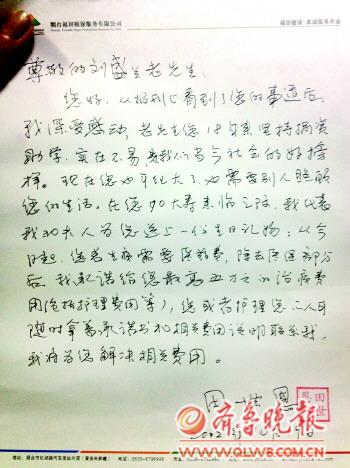 烟台福田植保服务有限公司
尊敬的刘盛兰老先生:
您好,从报刊上看到了您的事迹后,
我深受感动,老先生您18年来坚持捐资
助学,实在不易,是我们当今社会的好榜
样。现在您也年纪大了,也需要别人照顾
您的生活,在您90大寿来临之际,我代表
我和夫人为您送上一份生日礼物:从今
日起,您若生病需要医药费,除去医保部分
后,我承诺给您最高五万元的治病费
用(包括护理费用等),您或者护理您之人可
随时拿着承诺书和相关费用说明联系我,
我将为您解决相关费用。
田世
齐鲁晚报
WWW.QLWB.COM.CN